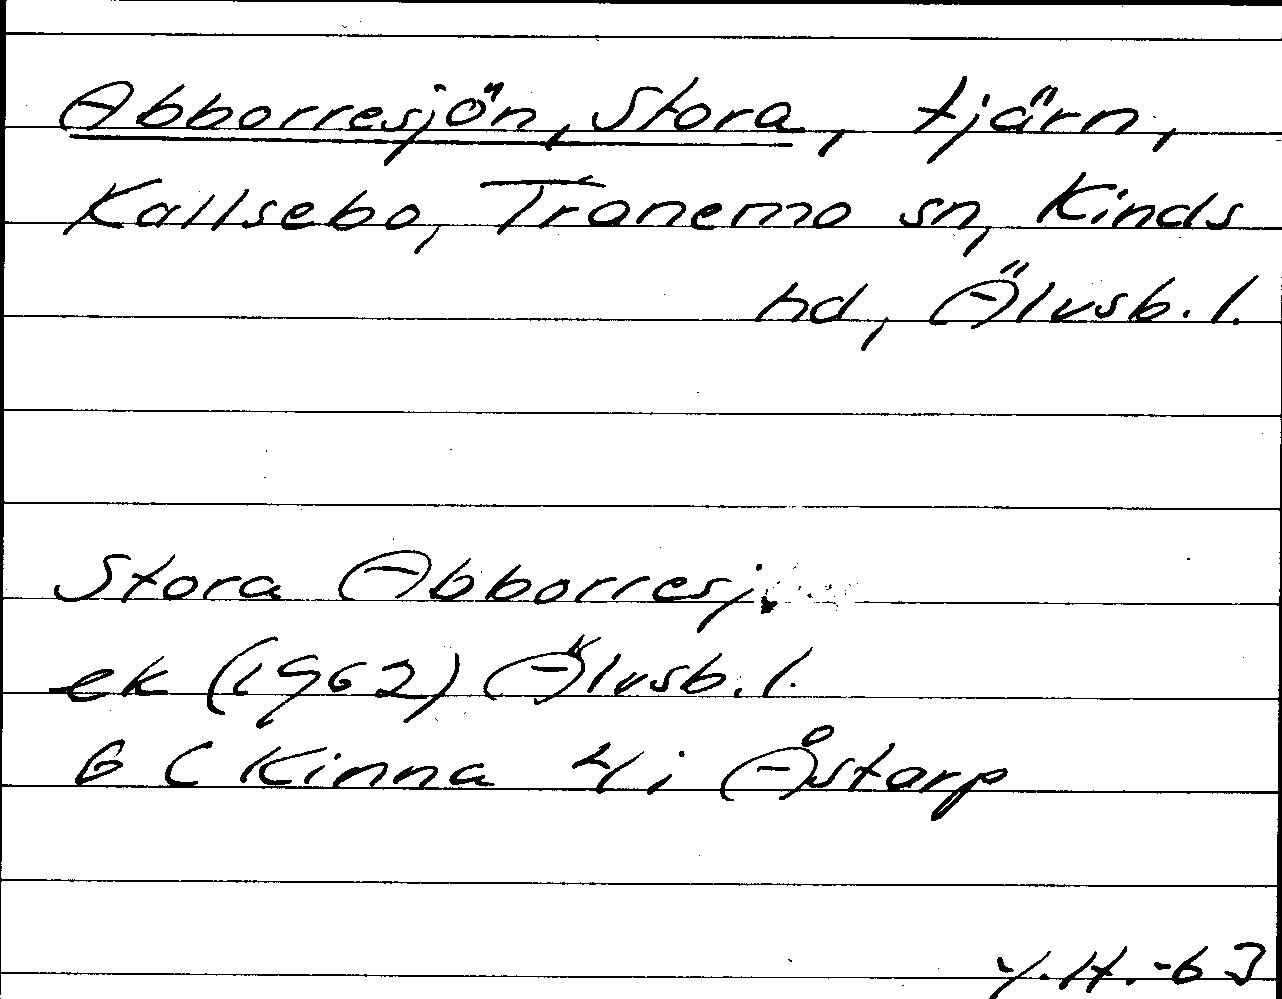 Abborresjön, Stora, tjärn,
Kallsebo, Tranemo sn, Kinds
hd, Älvsb. l.
Stora Abborresj.
ek (1962) Älvsb. l.
6 C Kinna 4 i Åstarp
Y.H.-63